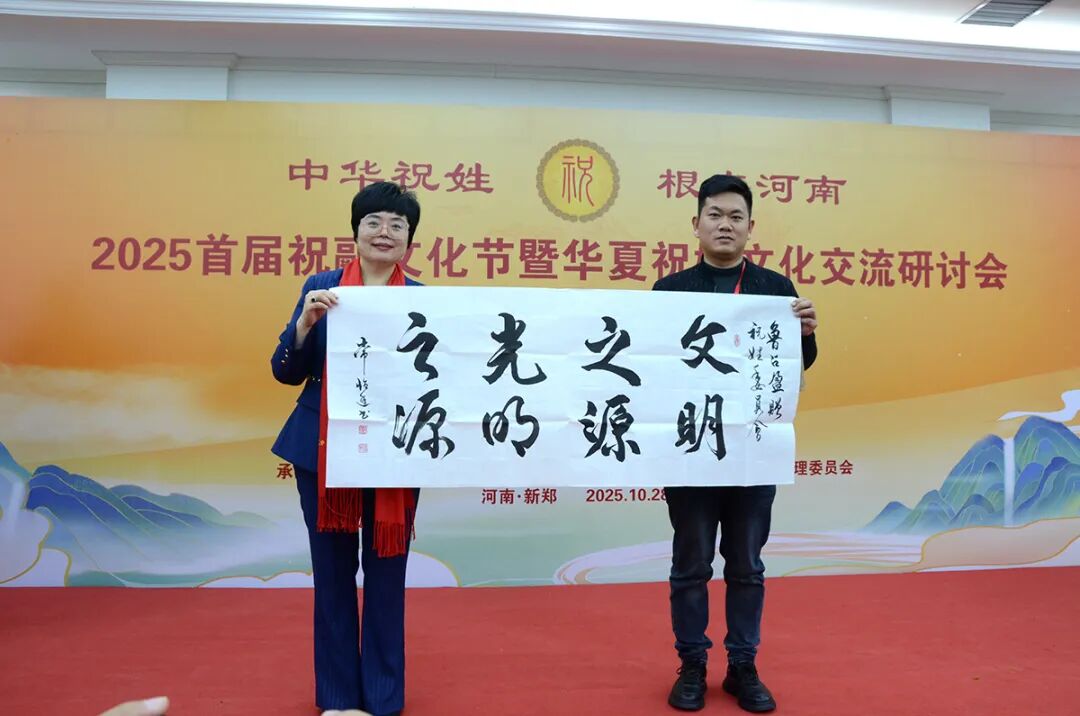 中华祝姓 祝 根在河南
2025首届祝融文化节暨华夏祝姓文化交流研讨会
鲁召盈赠
祝姓委员会
文明
之源
光明
之源
常
书
承
理委员会
河南·新郑 2025.10.28